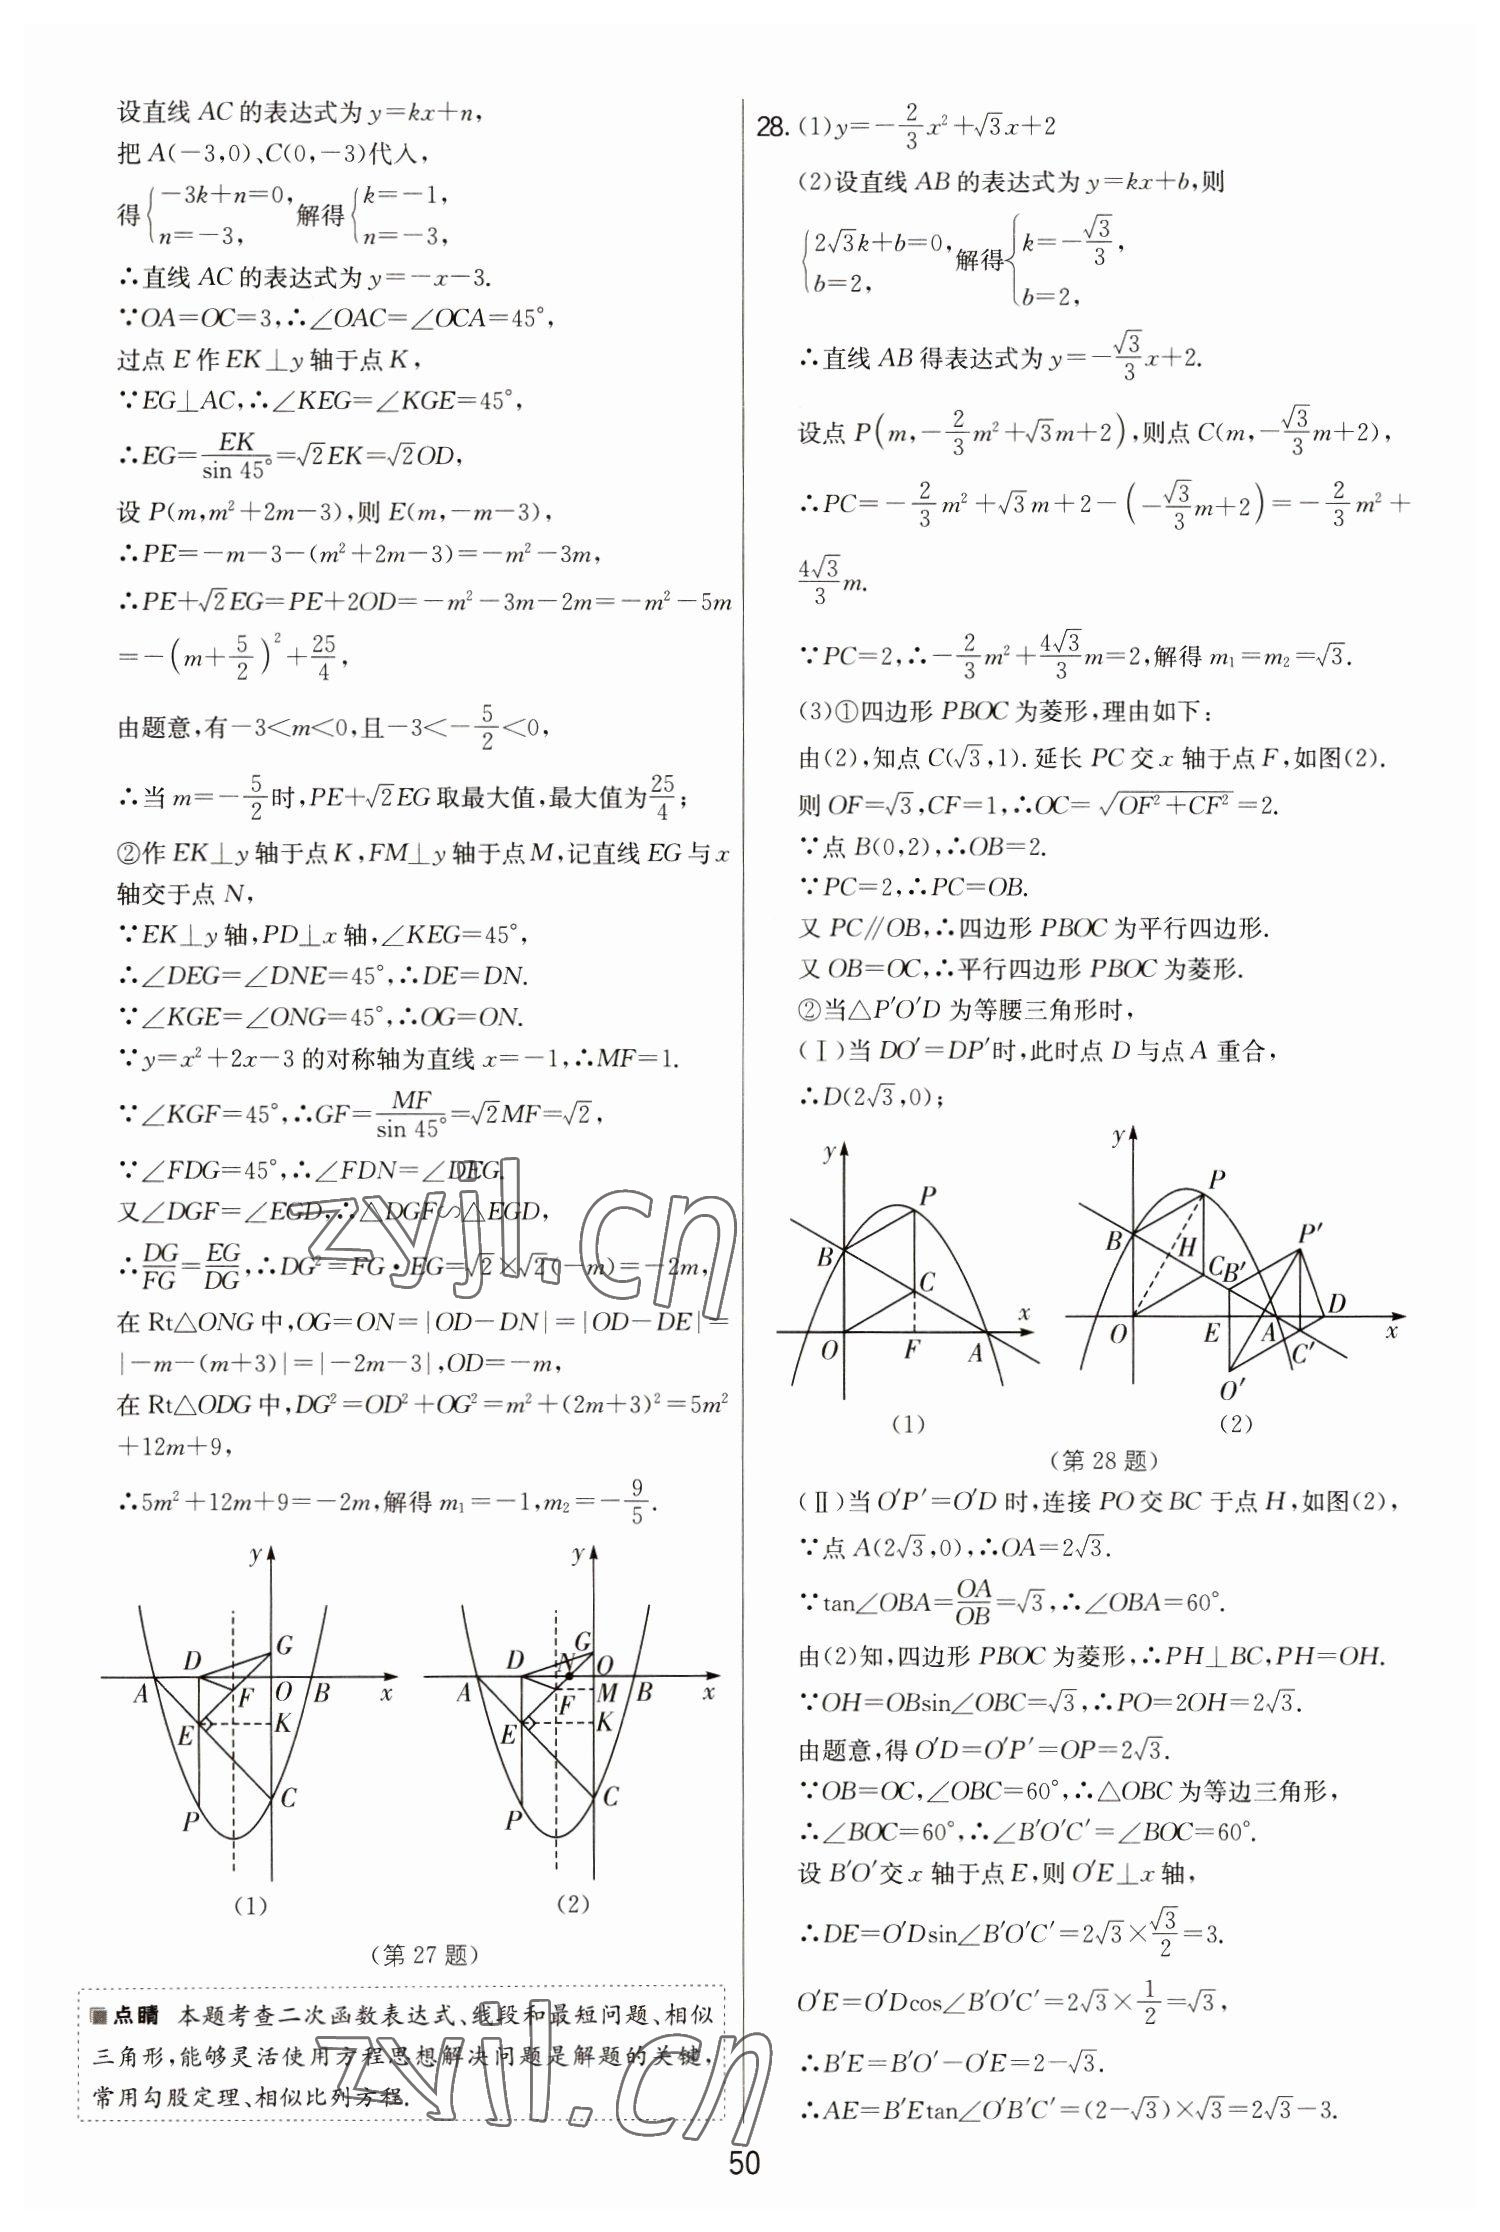 设直线 AC 的表达式为 y=kx+n,
把 A(-3,0)、C(0,-3)代入,
得{-3k+n=0, n=-3, 解得{k=-1, n=-3,
∴直线 AC 的表达式为 y=-x-3.
∵OA=OC=3,∴∠OAC=∠OCA=45°,
过点 E 作 EK⊥y 轴于点 K,
∵EG⊥AC,∴∠KEG=∠KGE=45°,
∴EG=EK/sin 45°=√2EK=√2OD,
设 P(m,m²+2m-3),则 E(m,-m-3),
∴PE=-m-3-(m²+2m-3)=-m²-3m,
∴PE+√2EG=PE+2OD=-m²-3m-2m=-m²-5m
=-(m+5/2)²+25/4,
由题意,有-3<m<0,且-3<-5/2<0,
∴当 m=-5/2时,PE+√2EG 取最大值,最大值为25/4;
②作 EK⊥y 轴于点 K,FM⊥y 轴于点 M,记直线 EG 与 x
轴交于点 N,
∵EK⊥y 轴,PD⊥x 轴,∠KEG=45°,
∴∠DEG=∠DNE=45°,∴DE=DN.
∵∠KGE=∠ONG=45°,∴OG=ON.
∵y=x²+2x-3 的对称轴为直线 x=-1,∴MF=1.
∵∠KGF=45°,∴GF=MF/sin 45°=√2MF=√2,
∵∠FDG=45°,∴∠FDN=∠DEG.
又∠DGF=∠EGD,∴△DGF∽△EGD,
∴DG/FG=EG/DG,∴DG²=FG·EG=√2×√2(-m)=-2m,
在 Rt△ONG 中,OG=ON=|OD-DN|=|OD-DE|=
|-m-(m+3)|=|-2m-3|,OD=-m,
在 Rt△ODG 中,DG²=OD²+OG²=m²+(2m+3)²=5m²
+12m+9,
∴5m²+12m+9=-2m,解得 m₁=-1,m₂=-9/5.
y
D G
A F O B x
E K
C
P
(1)
y
G
D N O
A F M B x
E K
C
P
(2)
(第 27 题)
点睛 本题考查二次函数表达式、线段和最短问题、相似
三角形,能够灵活使用方程思想解决问题是解题的关键,
常用勾股定理、相似比列方程.
28. (1)y=-2/3x²+√3x+2
(2)设直线 AB 的表达式为 y=kx+b,则
{2√3k+b=0, b=2, 解得{k=-√3/3, b=2,
∴直线 AB 得表达式为 y=-√3/3x+2.
设点 P(m,-2/3m²+√3m+2),则点 C(m,-√3/3m+2),
∴PC=-2/3m²+√3m+2-(-√3/3m+2)=-2/3m²+
4√3/3m.
∵PC=2,∴-2/3m²+4√3/3m=2,解得 m₁=m₂=√3.
(3)①四边形 PBOC 为菱形,理由如下:
由(2),知点 C(√3,1).延长 PC 交 x 轴于点 F,如图(2).
则 OF=√3,CF=1,∴OC=√(OF²+CF²)=2.
∵点 B(0,2),∴OB=2.
∵PC=2,∴PC=OB.
又 PC∥OB,∴四边形 PBOC 为平行四边形.
又 OB=OC,∴平行四边形 PBOC 为菱形.
②当△P′O′D 为等腰三角形时,
(Ⅰ)当 DO′=DP′时,此时点 D 与点 A 重合,
∴D(2√3,0);
y
P
B
C
O F A x
(1)
y
P
B H P′
C B′
D
O E A x
C′
O′
(2)
(第 28 题)
(Ⅱ)当 O′P′=O′D 时,连接 PO 交 BC 于点 H,如图(2),
∵点 A(2√3,0),∴OA=2√3.
∵tan∠OBA=OA/OB=√3,∴∠OBA=60°.
由(2)知,四边形 PBOC 为菱形,∴PH⊥BC,PH=OH.
∵OH=OBsin∠OBC=√3,∴PO=2OH=2√3.
由题意,得 O′D=O′P′=OP=2√3.
∵OB=OC,∠OBC=60°,∴△OBC 为等边三角形,
∴∠BOC=60°,∴∠B′O′C′=∠BOC=60°.
设 B′O′交 x 轴于点 E,则 O′E⊥x 轴,
∴DE=O′Dsin∠B′O′C′=2√3×√3/2=3.
O′E=O′Dcos∠B′O′C′=2√3×1/2=√3,
∴B′E=B′O′-O′E=2-√3.
∴AE=B′Etan∠O′B′C′=(2-√3)×√3=2√3-3.
50
zyjl.cn
zyjl.cn